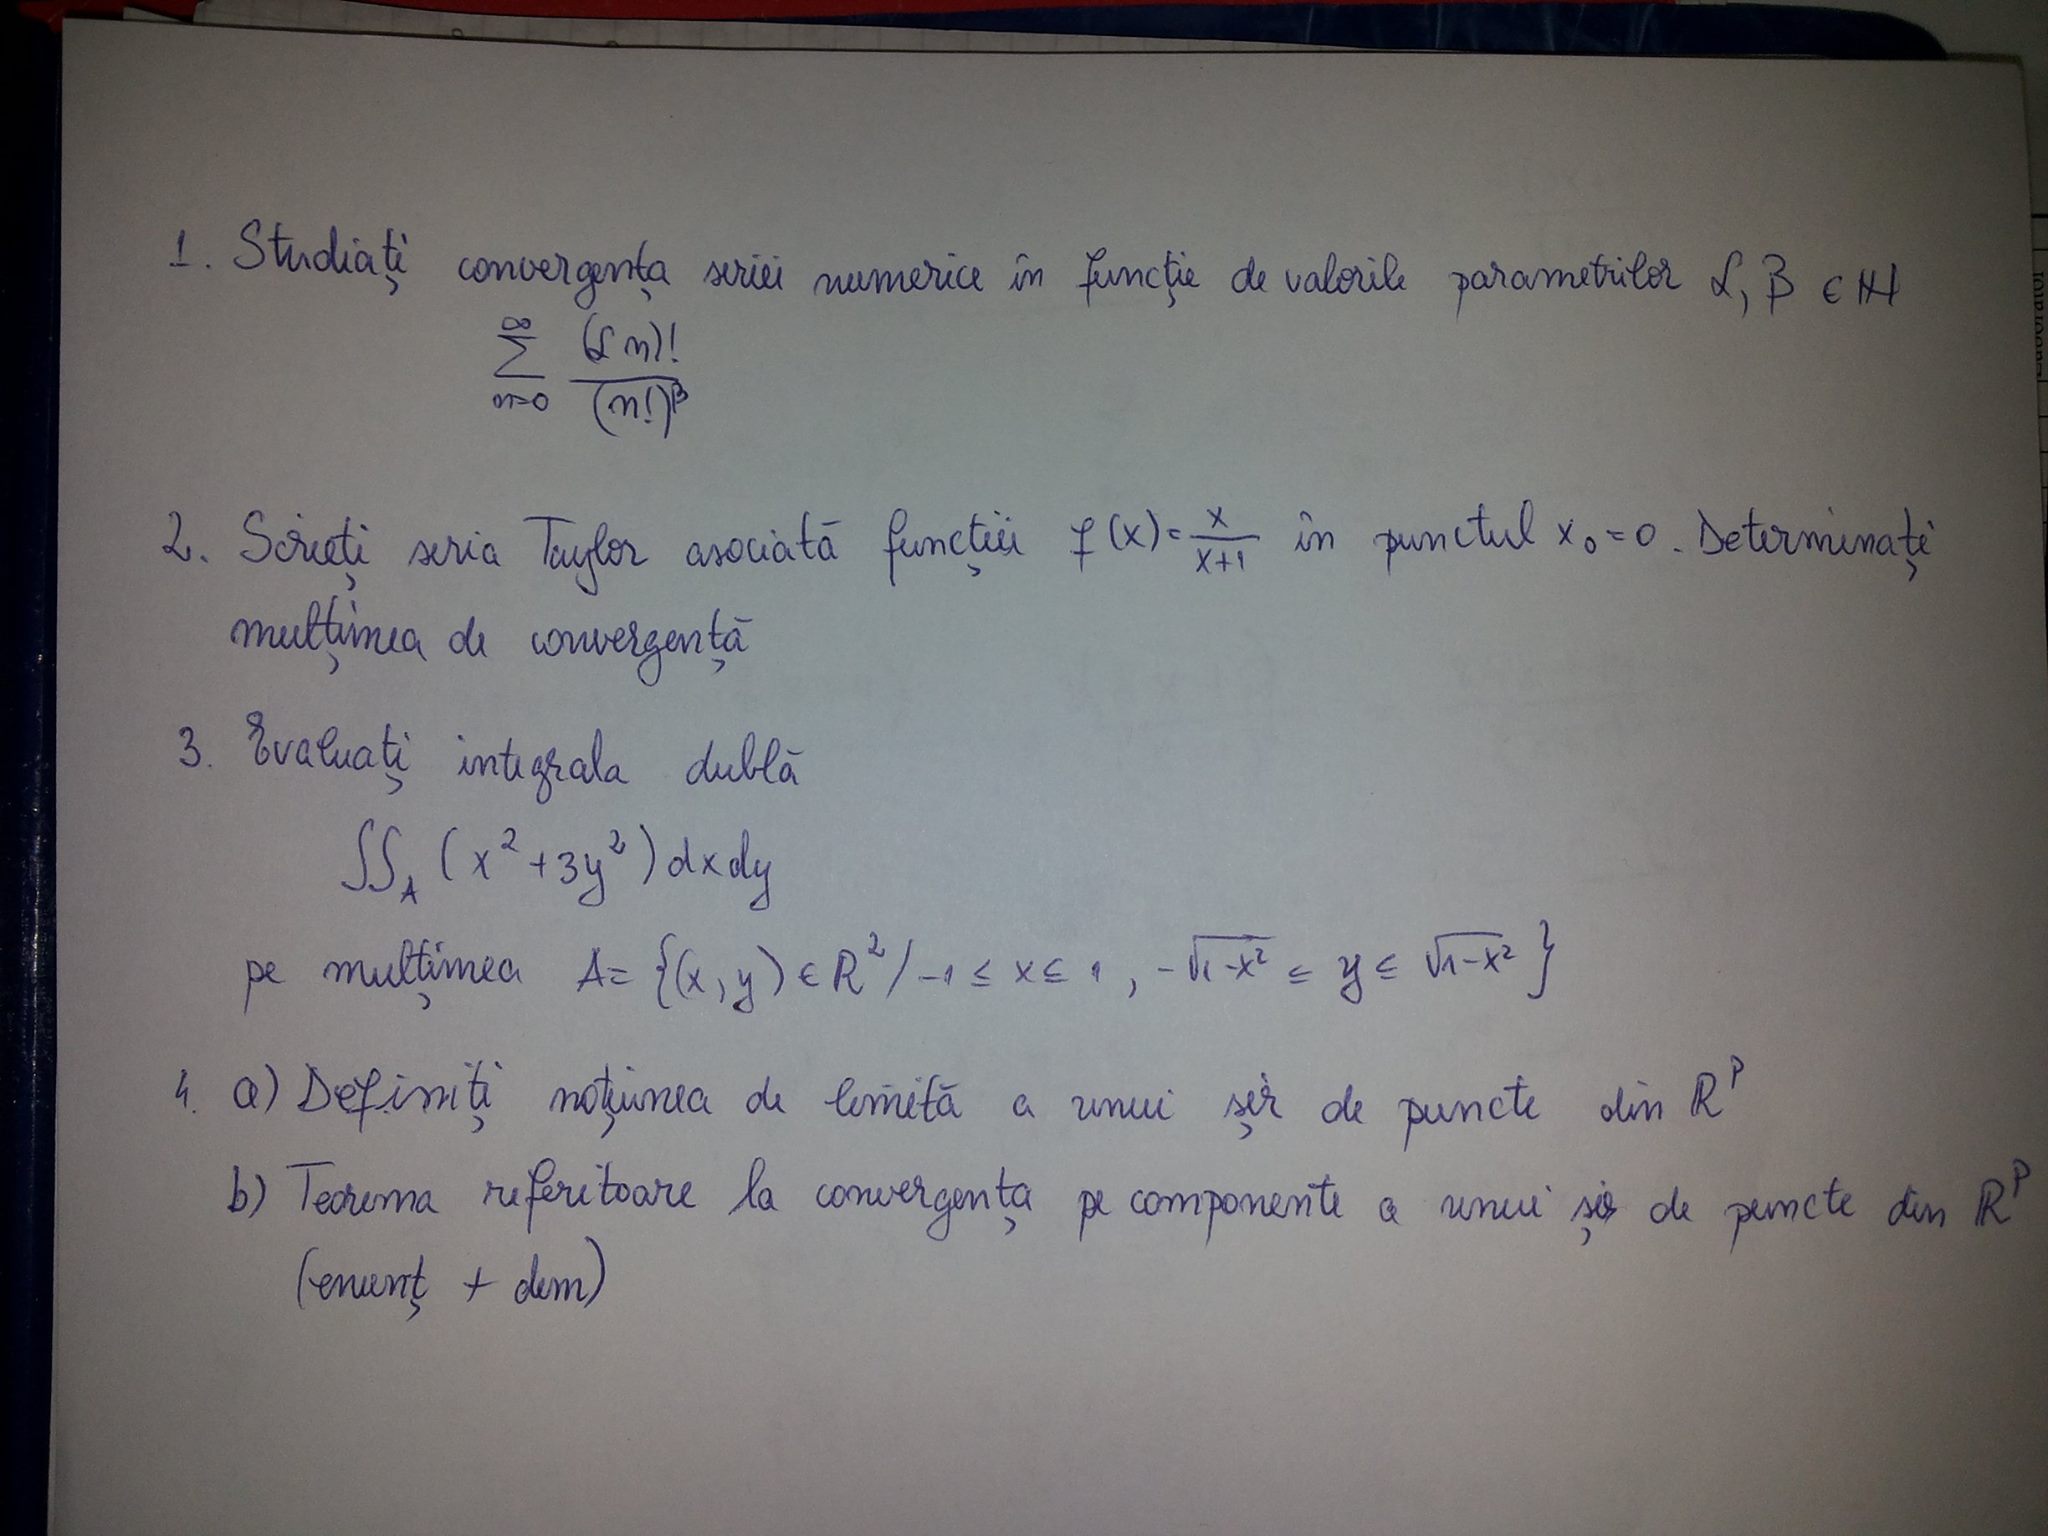 1. Studiați convergența seriei numerice în funcție de valorile parametrilor α, β ∈ ℕ
∞
∑ (αn)! / (n!)^β
n=0
2. Scrieți seria Taylor asociată funcției f(x) = x/(x+1) în punctul x₀=0. Determinați
mulțimea de convergență
3. Evaluați integrala dublă
∫∫_A (x²+3y²) dxdy
pe mulțimea A= {(x, y) ∈ ℝ² / -1 ≤ x ≤ 1, -√1-x² ≤ y ≤ √1-x² }
4. a) Definiți noțiunea de limită a unui șir de puncte din ℝᵖ
b) Teorema referitoare la convergența pe componente a unui șir de puncte din ℝᵖ
(enunț + dem)